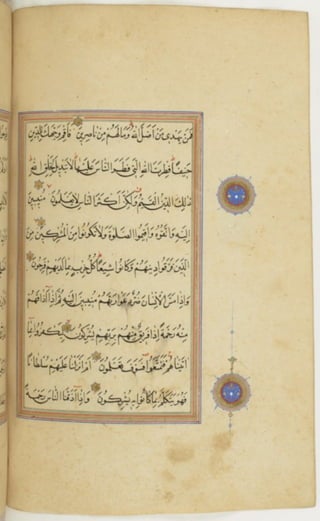 فمن يهدى من اضل الله وما لهم من ناصرين فاقم وجهك للدين
حنيفا فطرت الله التى فطر الناس عليها لا تبديل لخلق الله
ذلك الدين القيم ولكن اكثر الناس لا يعلمون منيبين
اليه واتقوه واقيموا الصلوة ولا تكونوا من المشركين من
الذين فرقوا دينهم وكانوا شيعا كل حزب بما لديهم فرحون
واذا مس الانسان ضر دعوا ربهم منيبين اليه ثم اذا اذاقهم
منه رحمة اذا فريق منهم بربهم يشركون ليكفروا بما
اتيناهم فتمتعوا فسوف تعلمون ام انزلنا عليهم سلطانا
فهو يتكلم بما كانوا به يشركون واذا اذقنا الناس رحمة